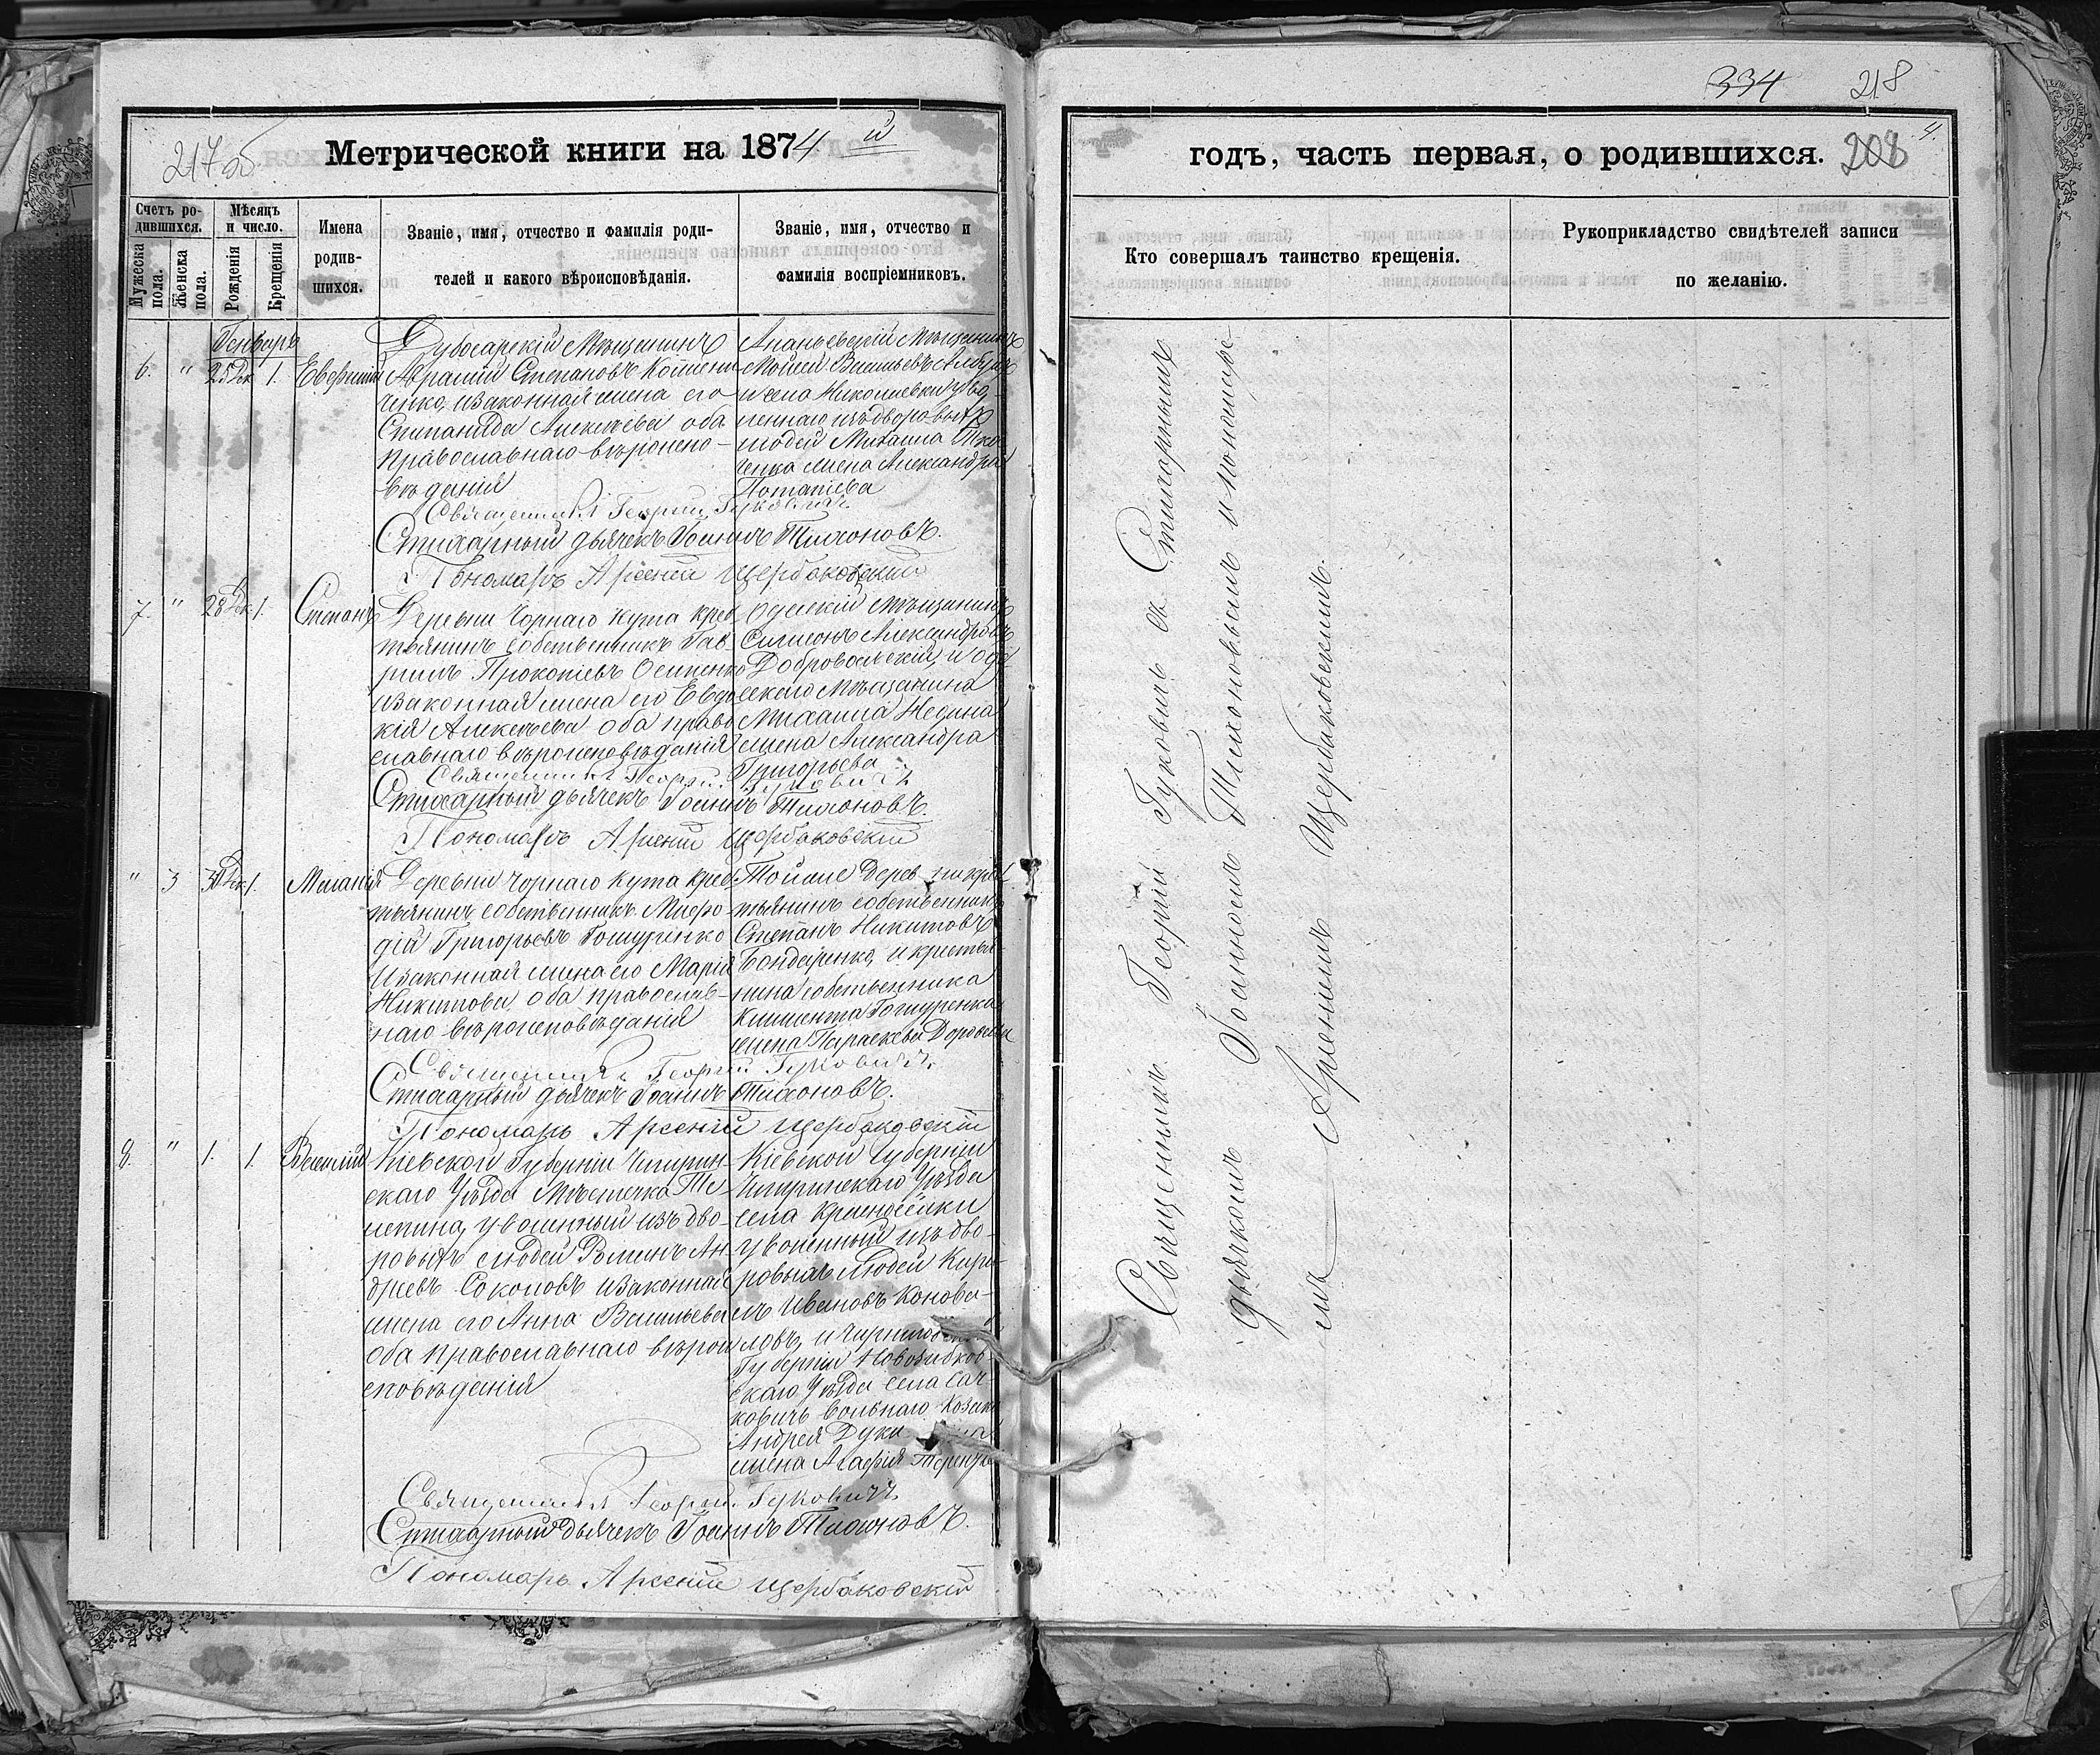 217 об
Метрической книги на 1874 й
Счетъ ро-
дившихся.
Мѣсяцъ
и число.
Имена
родив-
шихся.
Званіе, имя, отчество и фамилія роди-
телей и какого вѣроисповѣданія.
Званіе, имя, отчество и
фамилія воспріемниковъ.
Мужеска
пола.
Женска
пола.
Рожденія
Крещенія
Генваръ
6. " 25 Дек 1. Евфимій
Дубосарскій Мѣщанинъ
Аврамій Степановъ Кошени-
ченко, изаконная жена его
Степанида Алексѣева оба
православнаго вѣроиспо-
вѣданія
Ананьевскій Мѣщанинъ
Мойсей Васильевъ
и села Николаевки уво-
леннаго изъ дворовыхъ
людей Михаила Тка
ченка жена Александра
Потапіева
Священникъ Георгій Гуковичъ
Стихарный дьячекъ Іоаннъ Тихоновъ.
Пономарь Арсеній Щербаковскій
7. " 28 Дек. 1. Степанъ
Деревни Чорнаго Кута крес
тьянинъ собственникъ Гав
риилъ Прокопіевъ Осипенко
изаконная жена его Евдо
кія Алексѣева оба право
славнаго вѣроисповѣданія
Одесскій Мѣщанинъ
Симеонъ Александровъ
Добровольскій, и оде
сскаго Мѣщанина
Михаила Недина
жена Александра
Григорьева
Священникъ Георгій Гуковичъ
Стихарный дьячекъ Іоаннъ Тихоновъ.
Пономарь Арсеній Щербаковскій
" 3 30 Дек 1. Меланія
Деревни Чорнаго Кута крес
тьянинъ собственникъ Мефо-
дій Григорьевъ Гошуренко
изаконная жена его Марія
Никитова, оба православ-
наго вѣроисповѣданія
Той же Дерев ни крес
тьянинъ собственникъ
Степанъ Никитовъ
Бондаренко, и крестья
нина собственника
Климента Гошуренка
жена Параскева Дорофеева
Священникъ Георгій Гуковичъ
Стихарный дьячекъ Іоаннъ Тихоновъ.
Пономарь Арсеній Щербаковскій
8. " 1. 1. Василій
Кіевской Губерніи Чигирин-
скаго Уѣзда Мѣстечка Те-
лепина, уволенный изъ дво-
ровыхъ людей Романъ Ан-
дреевъ Соколовъ изаконная
жена его Анна Васильева
оба православнаго вѣрои
споведанія
Кіевской Губерніи
Чигиринскаго Уѣзда
села Красносёлки
уволенный изъ дво-
ровыхъ людей Кири-
лъ Ивановъ Конова-
ловъ, и Чернигов
Губерніи Новозибков-
скаго Уѣзда села Сач-
ковичъ вольнаго Козака
Андрея
жена Агафія
Священникъ Георгій Гуковичъ
Стихарный дьячекъ Іоаннъ Тихоновъ.
Пономарь Арсеній Щербаковскій
334 218
годъ, часть первая, о родившихся. 208
Кто совершалъ таинство крещенія.
Рукоприкладство свидѣтелей записи
по желанію.
Священникъ Георгій Гуковичъ съ Стихарнымъ
дьячкомъ Іоанномъ Тихоновымъ и пономаре-
мъ Арсеніемъ Щербаковскимъ.